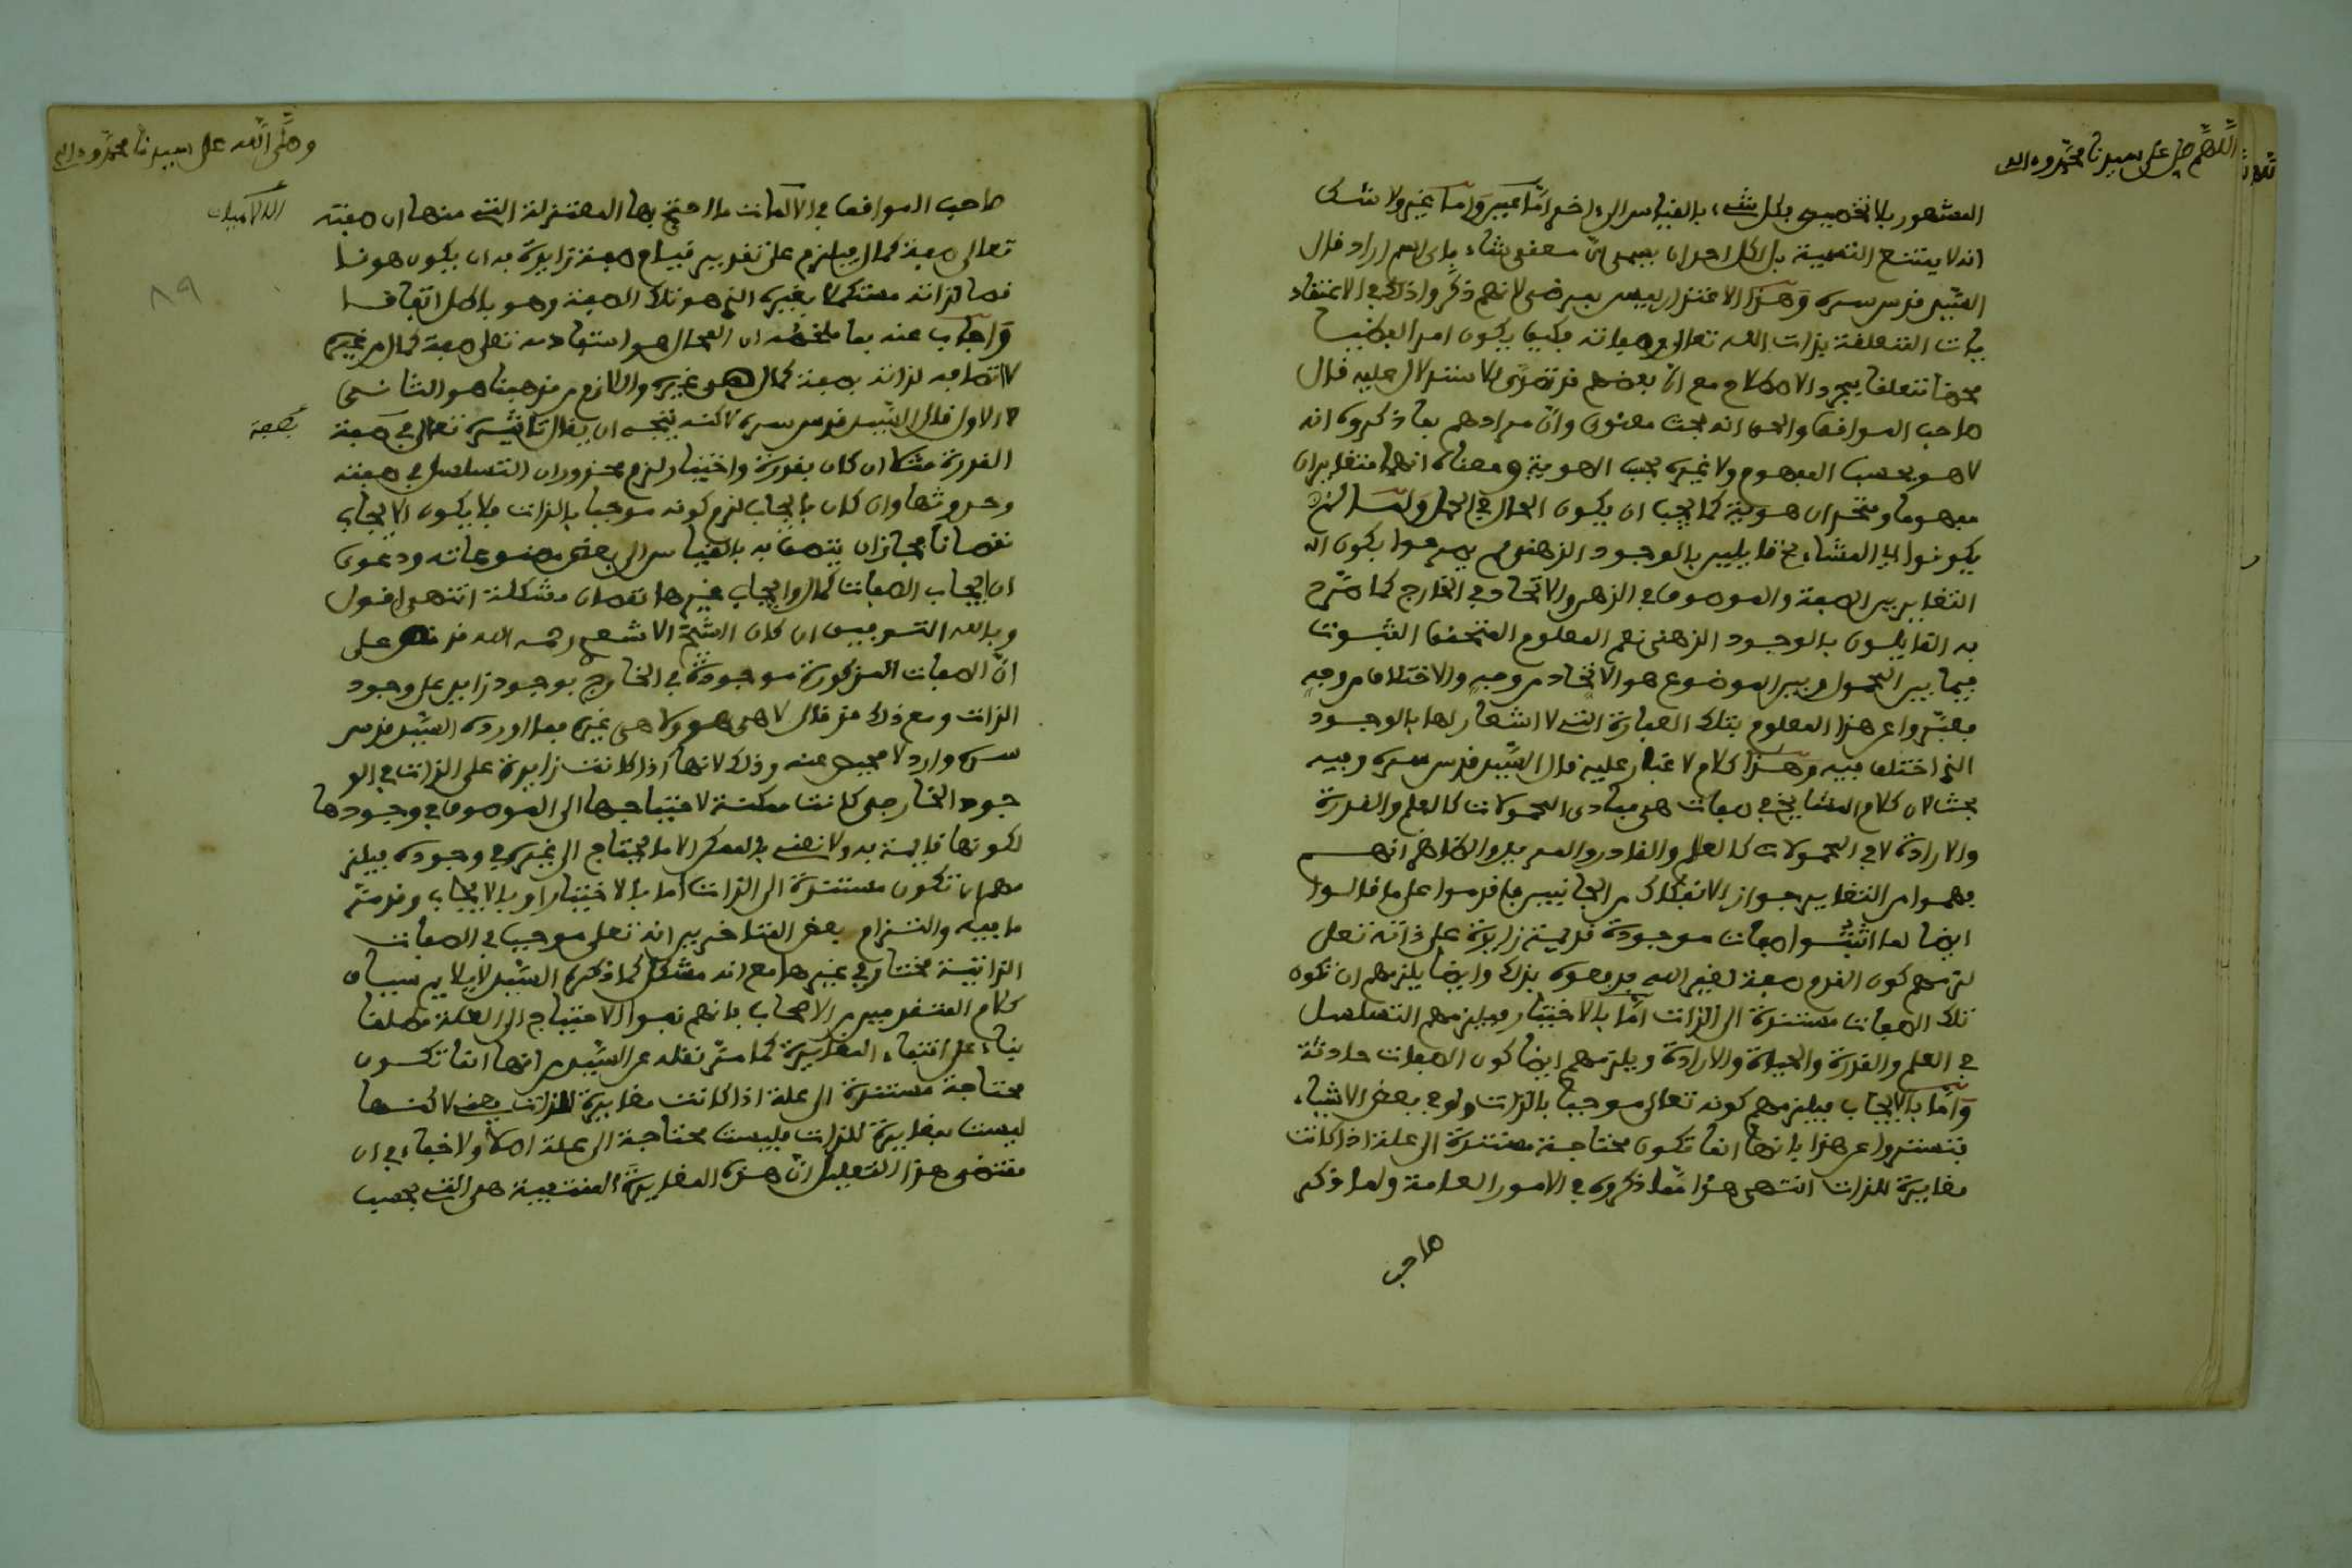 اللهم صل على سيدنا محمد وءاله
المشهور بلا تخصيص فكل شيء بالقياس الى ءاخر اما عين واما غير ولا شك
انه لا يمتنع التسمية بل لكل احد ان يسمي اي معنى شاء باي اسم اراد قال
السيد قدس سره وهذا الاعتذار ليس بمرضي لانهم ذكروا ذلك في الاعتقاد
يات المتعلقة بذات الله تعالى وصفاته فكيف يكون امرا لفظيا
محضا متعلقا بمجرد الاصطلاح مع ان بعضهم قد تصدى للاستدلال عليه قال
صاحب المواقف والحق انه بحث معنوي وان مرادهم بما ذكروه انه
لا هو بحسب المفهوم ولا غيره بحسب الهوية ومعناه انهما متغايران
مفهوما ومتحدان هوية كما يجب ان يكون الحال في الحمل ولما لم
يكونوا اي المشايخ قايلين بالوجود الذهني لم يصرحوا بكون
التغاير بين الصفة والموصوف في الذهن والاتحاد في الخارج كما صرح
به القايلون بالوجود الذهني نعم المعلوم المتحقق الثبوت
فيما بين المحمول وبين الموضوع هو الاتحاد من وجه والاختلاف من وجه
فعبروا عن هذا المعلوم بتلك العبارة التي لا اشعار لها بالوجود
الذي اختلف فيه وهذا كلام لا غبار عليه قال السيد قدس سره وفيه
بحث لان كلام المشايخ في صفات هي مبادي المحمولات كالعلم والقدرة
والارادة لا في المحمولات كالعالم والقادر والمريد والظاهر انهم
فهموا من التغاير جواز الانفكاك من الجانبين فاقدموا على ما قالوا
ايضا لما اثبتوا صفات موجودة قديمة زايدة على ذاته تعلى
لزمهم كون القدم صفة لغير الله فدفعوه بذلك وايضا يلزمهم ان تكون
تلك الصفات مستندة الى الذات اما بالاختيار فيلزمهم التسلسل
في العلم والقدرة والحياة والارادة ويلزمهم ايضا كون الصفات حادثة
واما بالايجاب فيلزمهم كونه تعالى موجبا بالذات ولو في بعض الاشياء
فتستروا عن هذا بانها انما تكون محتاجة مستندة الى علة اذا كانت
مغايرة للذات انتهى هذا مما ذكروه في الامور العامة ولما ذكر
صاحب
وصلى الله على سيدنا محمد وءاله
صاحب المواقف في الالهيات ما احتج بها المعتزلة التي منها ان صفته
تعالى صفة كمال فيلزم على تقدير قيام صفة زايدة به ان يكون هو نا
قصا لذاته مستكملا بغيره الذي هو تلك الصفة وهو باطل اتفاقا
واجاب عنه بما ملخصه ان المحال هو استفادته تعلى صفة كمال من غيره
لا اتصافه لذاته بصفة كمال هي غيره واللازم من مذهبنا هو الثاني
لا الاول قال السيد قدس سره لاكنه يتجه ان يقال تاثيره تعالى في صفة
القدرة مثلا ان كان بقدرة واختيار لزم محذوران التسلسل في صفته
وحدوثها وان كان بايجاب لزم كونه موجبا بالذات فلا يكون الايجاب
نقصانا فجاز ان يتصف به بالقياس الى بعض مصنوعاته ودعوى
ان ايجاب الصفات كمال وايجاب غيرها نقصان مشكلة انتهى اقول
وبالله التوفيق ان كان الشيخ الاشعري رحمه الله قد نص على
ان الصفات المذكورة موجودة في الخارج بوجود زايد على وجود
الذات ومع ذلك قد قال لا هي هو ولا هي غيره فما اورده السيد قدس
سره وارد لا محيص عنه وذلك لانها اذا كانت زايدة على الذات في الو
جود الخارجي كانت ممكنة لاحتياجها الى الموصوف في وجودها
لكونها قايمة به ولا نعني بالممكن الا ما يحتاج الى غيره في وجوده فيلز
مهم ان تكون مستندة الى الذات اما بالاختيار او بالايجاب وقد مر
ما فيه والتزام بعض المتاخرين انه تعلى موجب في الصفات
الذاتية مختار في غيرها مع انه مشكل كما ذكره السيد لا يلايم سياق
كلام المتقدمين من الاصحاب بانهم نفوا الاحتياج الى العلة مطلقا
بناء على انتفاء المغايرة كما مر نقله عن السيد من انها انما تكون
محتاجة مستندة الى علة اذا كانت مغايرة للذات يعني لاكنها
ليست مغايرة للذات فليست محتاجة الى علة اصلا ولا خفاء في ان
مقتضى هذا التعليل ان هذه المغايرة المنفية هي التي بحسب
٨٩